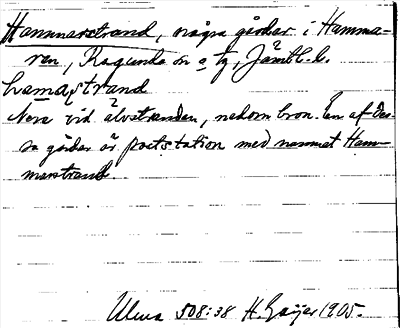 Hammarstrand, några gårdar i Hamma-
ren, Ragunda sn o tg, Jämtl. l.
hamaʃtrand
Nere vid älvstranden, nedom bron. En af des-
sa gårdar är poststation med namnet Ham-
marstrand.
Ulma 508:38 H. Geijer 1905.